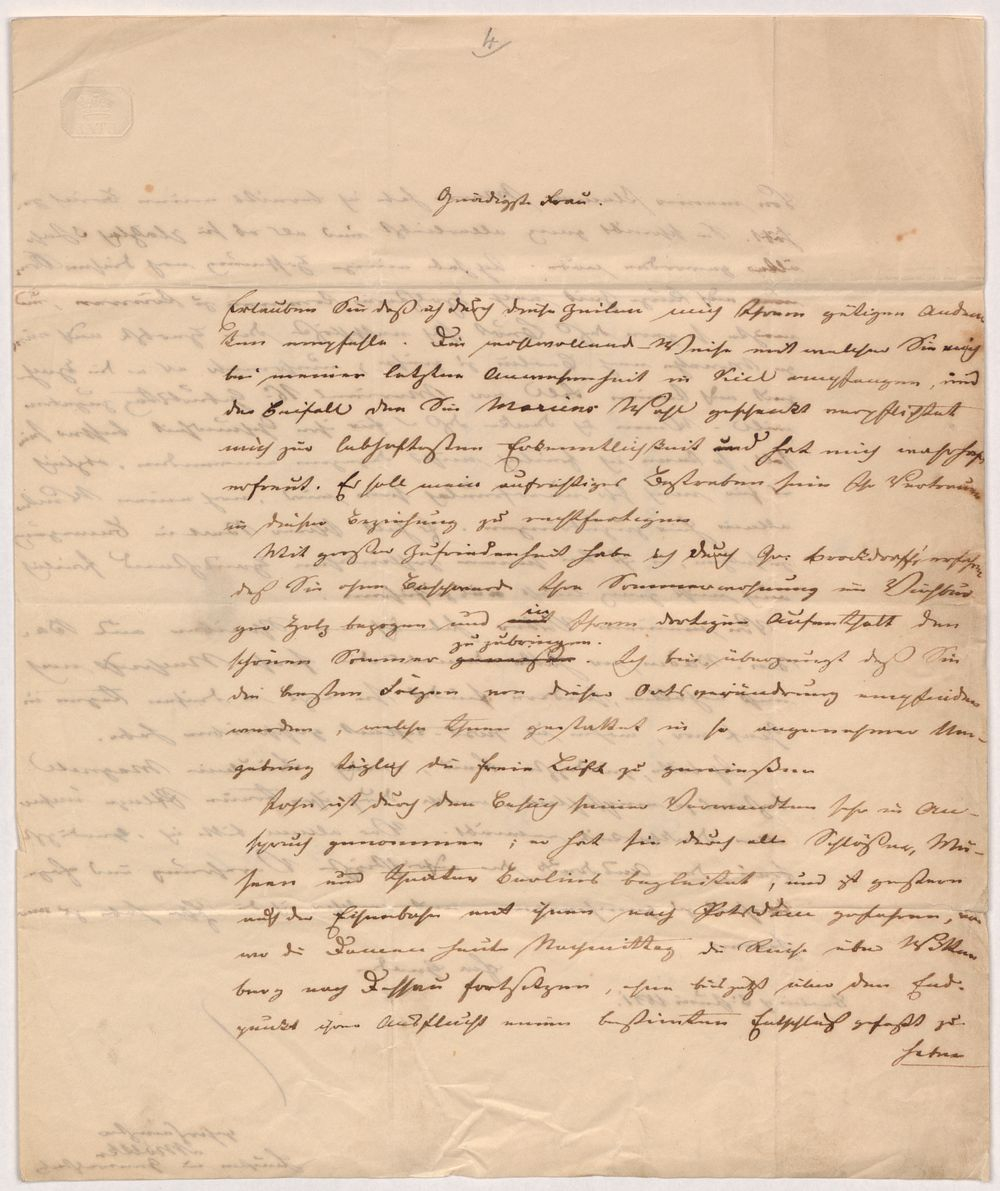 4
Gnädigste Frau.
Erlauben Sie daß ich durch diese Zeilen mich Ihrem gütigen Anden-
ken empfehle. Die wollwollende Weise mit welcher Sie mich
bei meiner letzten Anwesenheit in Kiel empfangen, und
der Beifall den Sie Mariens Wahl geschenkt verpflichtet
mich zur lebhaftesten Erkentlichkeit und hat mich wahrhaft
erfreut. Es soll mein aufrichtiges Bestreben sein Ihr Vertrauen
in dieser Beziehung zu rechtfertigen
Mit großer Zufriedenheit habe ich durch Gr: Brockdorff erfahren
daß Sie ohne Beschwerde Ihre Sommerwohnung im Düsternbro
ger Holz bezogen und in Ihrem dortigen Aufenthalt den
zu zubringen.
schönen Sommer genießen. Ich bin überzeugt daß Sie
die besten Folgen von dieser Ortsveründrung empfinden
werden, welche Ihnen gestattet in so angenehmer Um-
gebung täglich die freie Luft zu genießen
John ist durch den Besuch seiner Verwandten sehr in An-
spruch genommen; er hat sie durch alle Schlößer, Mu-
seen und Theater Berlins begleitet, und ist gestern
auf der Eisenbahn mit ihnen nach Potsdam gefahren, von
wo die Damen heute Nachmittag die Reise über Witten
berg nach Dessau fortsetzen, ohne bis jetzt über den End-
punkt ihrer Ausflucht einen bestimten Entschluß gefaßt zu
haben